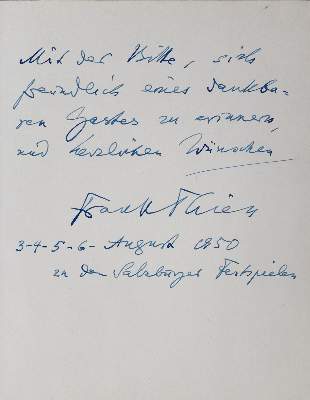 Mit der Bitte, sich
freundlich eines dankba-
ren Gastes zu erinnern,
und herzlichen Wünschen
Frank Thiess
3-4-5-6- August 1950
zu den Salzburger Festspielen